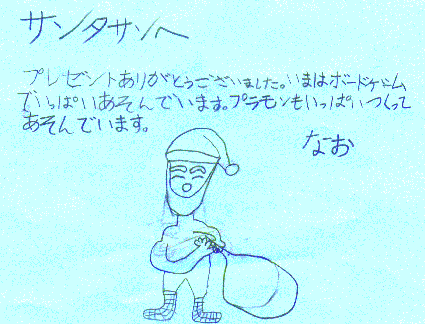 サンタサンへ
プレゼントありがとうございました。いまはボードゲーム
でいっぱいあそんでいます。プラモンもいっぱいつくって
あそんでいます。
なお